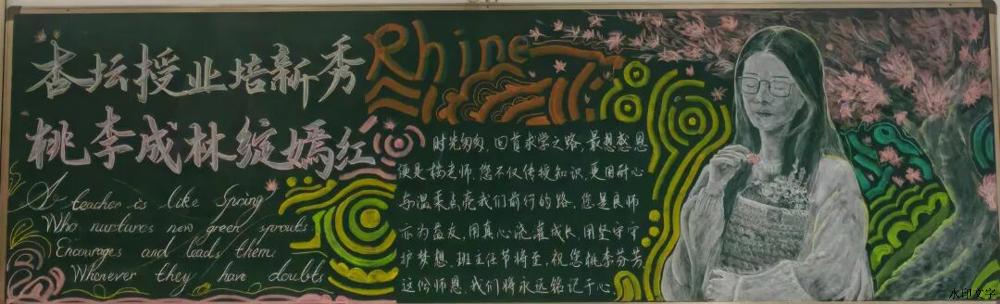 杏坛授业培新秀
桃李成林绽嫣红
Rhine
A teacher is like Spring
Who nurtures new green sprouts.
Encourages and leads them.
Whenever they have doubts
时光匆匆，回首求学之路，最想感恩
便是杨老师，您不仅传授知识，更用耐心
与温柔点亮我们前行的路，您是良师
亦为益友，用真心浇灌成长，用坚守守
护梦想，班主任节将至，祝您桃李芬芳
这份师恩，我们将永远铭记于心。
水印文字